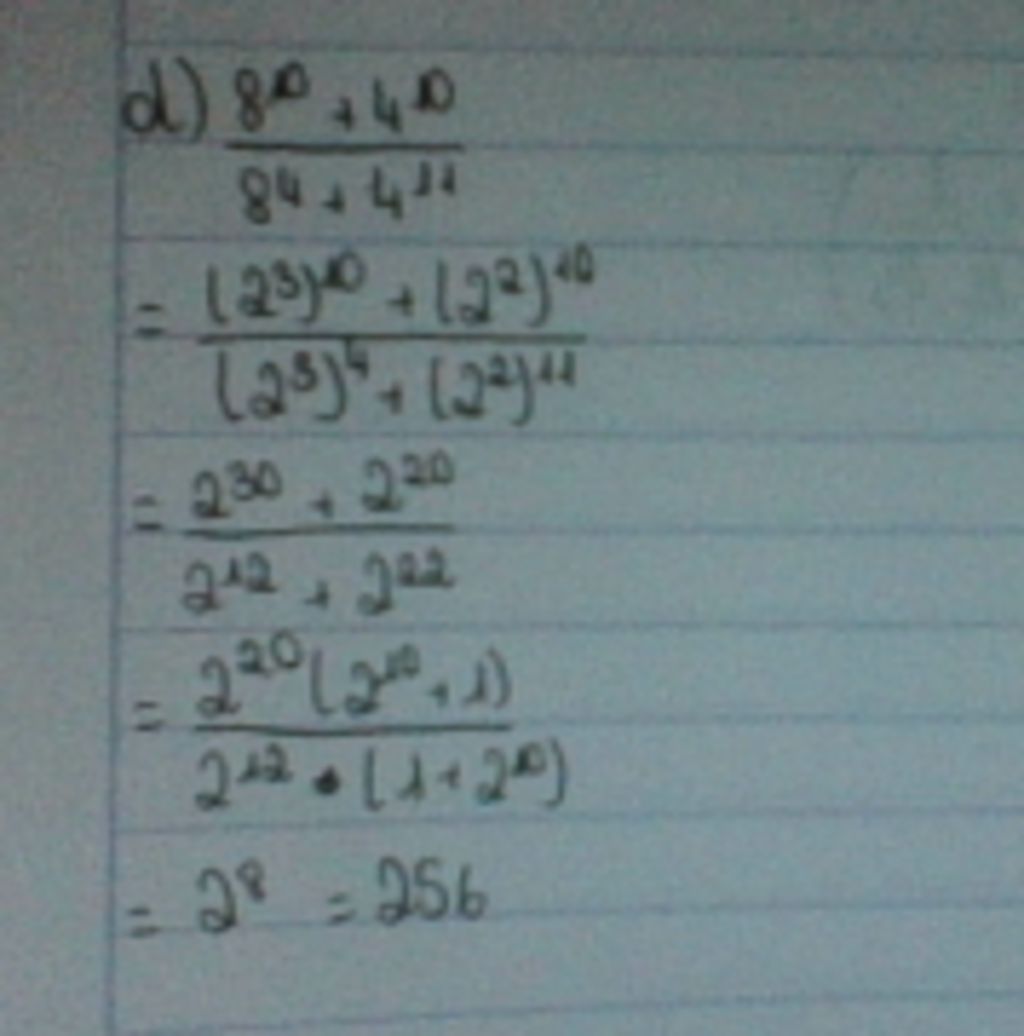 d) 8¹⁰ + 4¹⁰
8⁴ + 4¹¹
= (2³)¹⁰ + (2²)¹⁰
(2³)⁴ + (2²)¹¹
= 2³⁰ + 2²⁰
2¹² + 2²²
= 2²⁰(2¹⁰ + 1)
2¹² • (1 + 2¹⁰)
= 2⁸ = 256